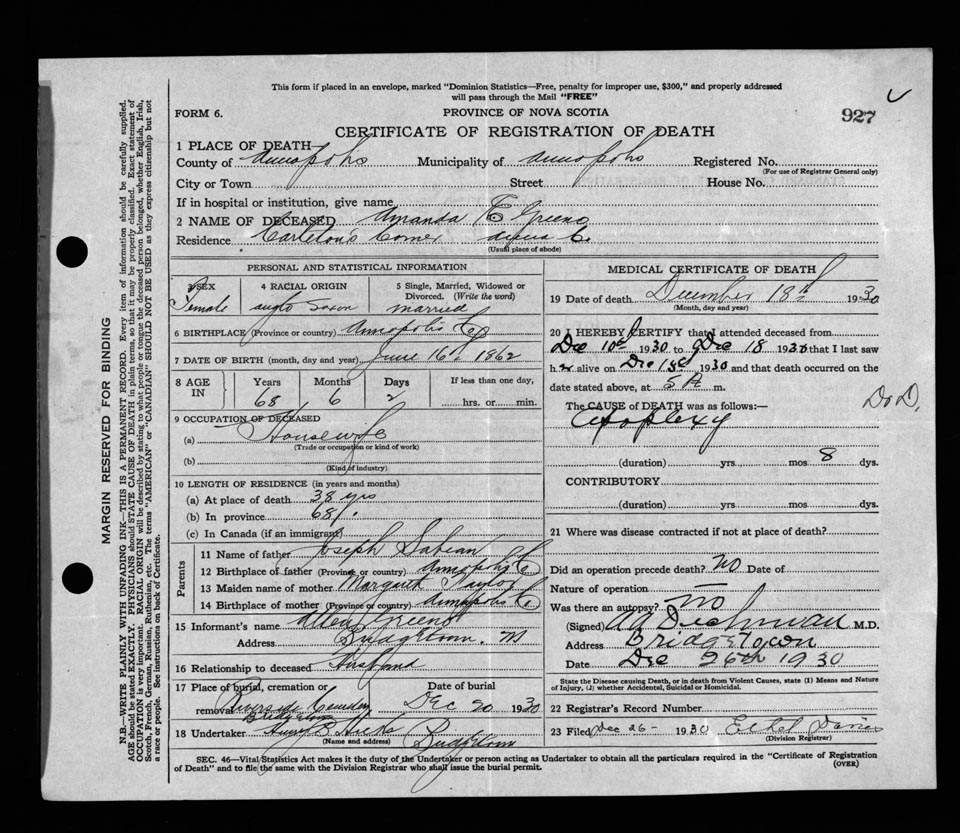 This form if placed in an envelope, marked "Dominion Statistics—Free, penalty for improper use, $300," and properly addressed
will pass through the Mail "FREE"
FORM 6.
PROVINCE OF NOVA SCOTIA
927
CERTIFICATE OF REGISTRATION OF DEATH
1 PLACE OF DEATH
County of Annapolis Municipality of Annapolis Registered No.
(For use of Registrar General only)
City or Town Street House No.
If in hospital or institution, give name
2 NAME OF DECEASED Amanda E Greeno
Residence Carleton's Corner Anna C.
(Usual place of abode)
PERSONAL AND STATISTICAL INFORMATION
3 SEX 4 RACIAL ORIGIN 5 Single, Married, Widowed or
Divorced. (Write the word)
Female anglo saxon married
6 BIRTHPLACE (Province or country) Annapolis Co
7 DATE OF BIRTH (month, day and year) June 16th 1862
8 AGE IN Years Months Days If less than one day,
68 6 2 hrs. or min.
9 OCCUPATION OF DECEASED
(a) Housewife
(Trade or occupation or kind of work)
(b)
(Kind of industry)
10 LENGTH OF RESIDENCE (in years and months)
(a) At place of death 38 yrs
(b) In province 68
(c) In Canada (if an immigrant)
Parents
11 Name of father Joseph Sabean
12 Birthplace of father (Province or country) Annapolis Co
13 Maiden name of mother Margaret Taylor
14 Birthplace of mother (Province or country) Annapolis Co
15 Informant's name Allen Greeno
Address Bridgetown.
16 Relationship to deceased Husband
17 Place of burial, cremation or Date of burial
removal Riverside Cemetery Dec 20 1930
Bridgetown
18 Undertaker Hicks Bridgetown
(Name and address)
MEDICAL CERTIFICATE OF DEATH
19 Date of death December 18th 1930
(Month, day and year)
20 I HEREBY CERTIFY that I attended deceased from
Dec 10th 1930 to Dec 18 1930 that I last saw
h er alive on Dec 1930 and that death occurred on the
date stated above, at 5 A m.
The CAUSE of DEATH was as follows:—
Apoplexy
(duration) yrs. mos 8 dys.
CONTRIBUTORY
(duration) yrs. mos dys.
21 Where was disease contracted if not at place of death?
Did an operation precede death? No Date of
Nature of operation
Was there an autopsy? No
(Signed) Dechman M.D.
Address Bridgetown
Date Dec 26th 1930
State the Disease causing Death, or in death from Violent Causes, state (1) Means and Nature
of Injury, (2) whether Accidental, Suicidal or Homicidal.
22 Registrar's Record Number
23 Filed Dec 26- 1930
(Division Registrar)
SEC. 46—Vital Statistics Act makes it the duty of the Undertaker or person acting as Undertaker to obtain all the particulars required in the "Certificate of Registration
of Death" and to file the same with the Division Registrar who shall issue the burial permit.
(OVER)
MARGIN RESERVED FOR BINDING
N.B.—WRITE PLAINLY WITH UNFADING INK—THIS IS A PERMANENT RECORD. Every item of information should be carefully supplied.
AGE should be stated EXACTLY. PHYSICIANS should STATE CAUSE OF DEATH in plain terms, so that it may be properly classified. Exact statement of
OCCUPATION is very important. RACIAL ORIGIN will be described by stating to what people or tongue the deceased person belonged, whether English, Irish,
Scotch, French, German, Russian, Ruthenian, etc. The terms "AMERICAN" or "CANADIAN" SHOULD NOT BE USED as they express citizenship but not
a race or people. See instructions on back of Certificate.